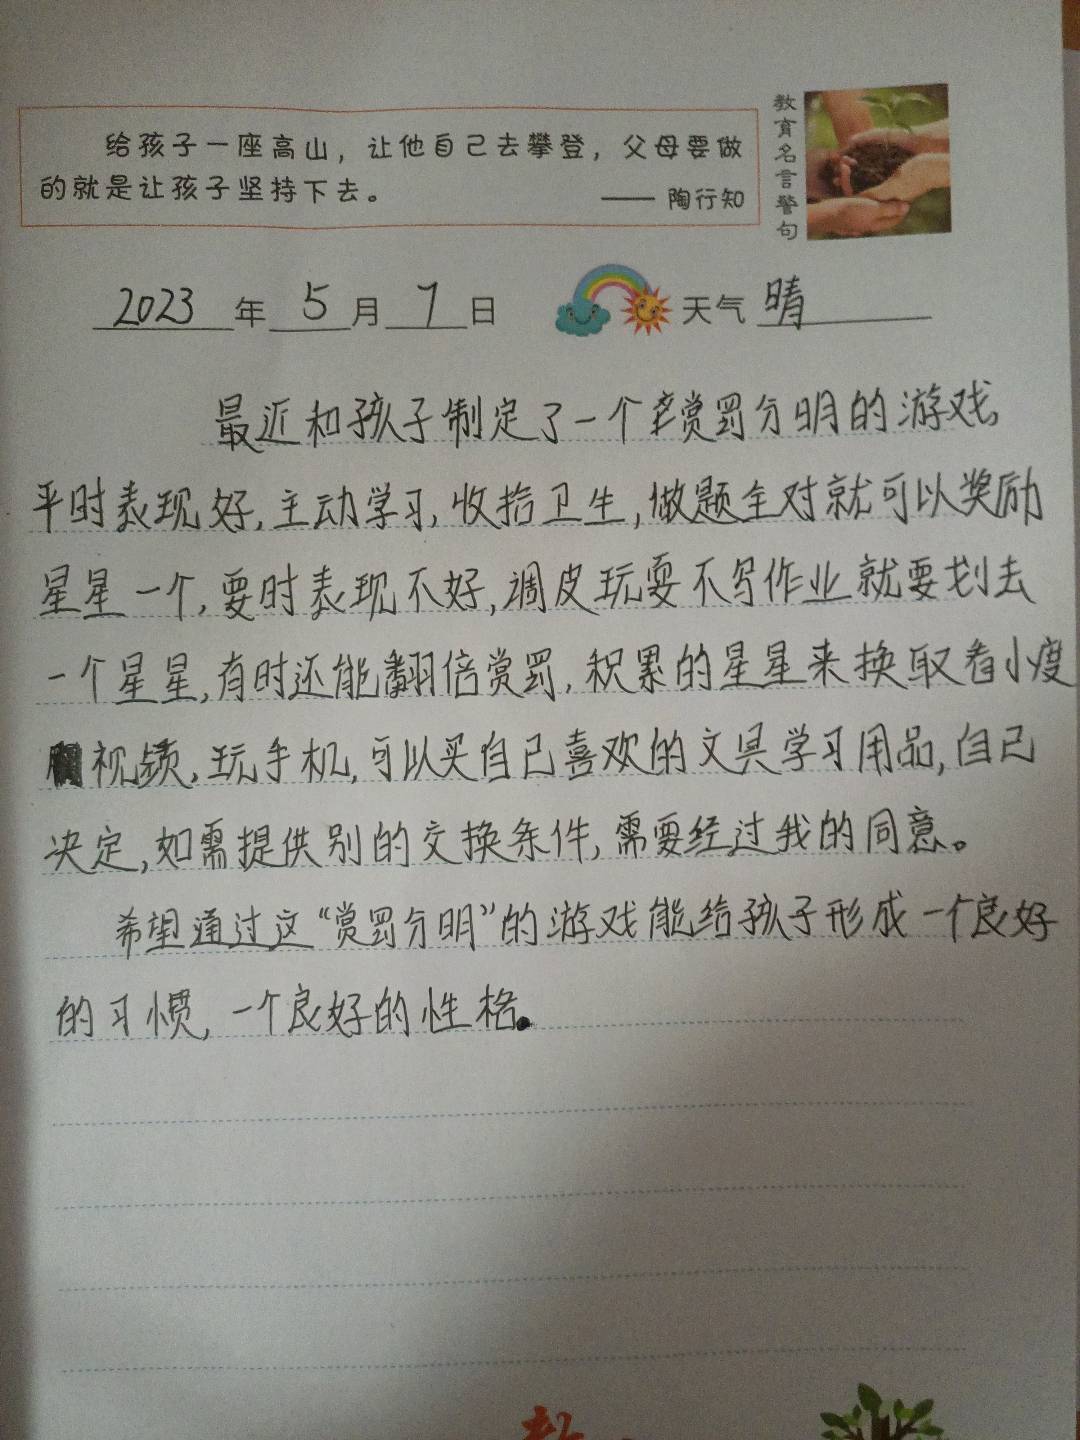 给孩子一座高山，让他自己去攀登，父母要做
的就是让孩子坚持下去。
—— 陶行知
教育名言警句
2023年5月7日 天气 晴
最近和孩子制定了一个赏罚分明的游戏
平时表现好,主动学习,收拾卫生,做题全对就可以奖励
星星一个,要时表现不好,调皮玩耍不写作业就要划去
一个星星,有时还能翻倍赏罚,积累的星星来换取看小度
视频,玩手机,可以买自己喜欢的文具学习用品,自己
决定,如需提供别的交换条件,需要经过我的同意。
希望通过这“赏罚分明”的游戏能给孩子形成一个良好
的习惯,一个良好的性格。